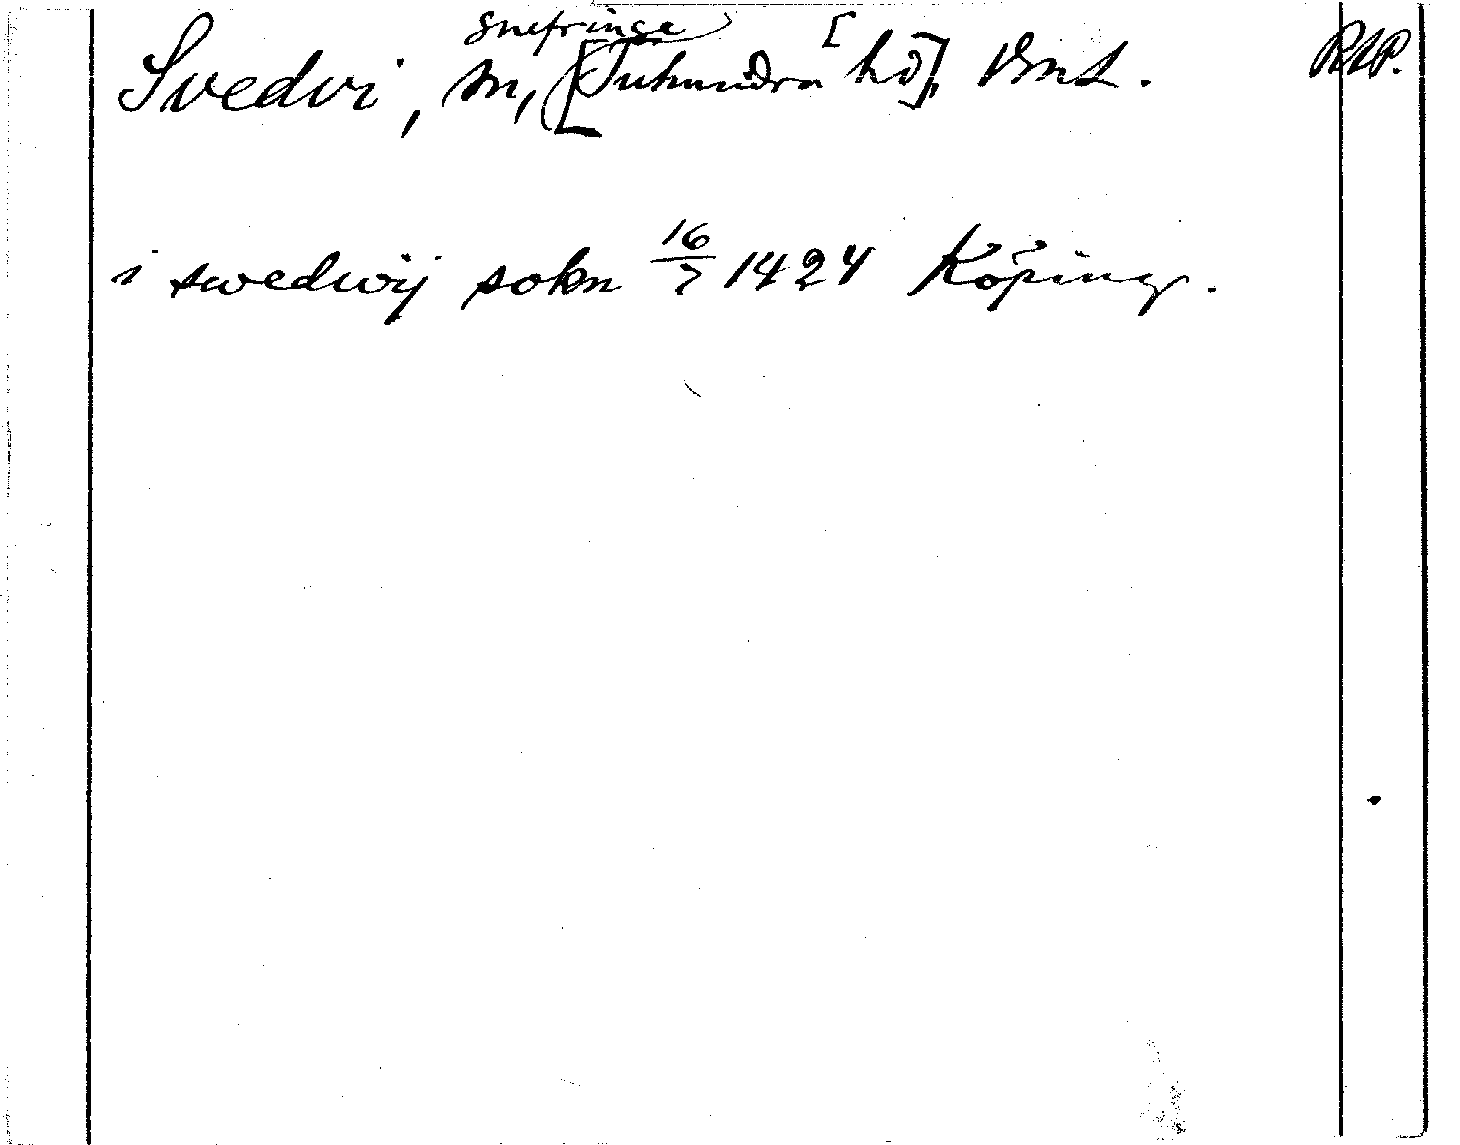 Snefringe
Svedvi, sn, [Tuhundra hd], Vml. RAP.
i swedwij sokn 16/7 1424 Köping.